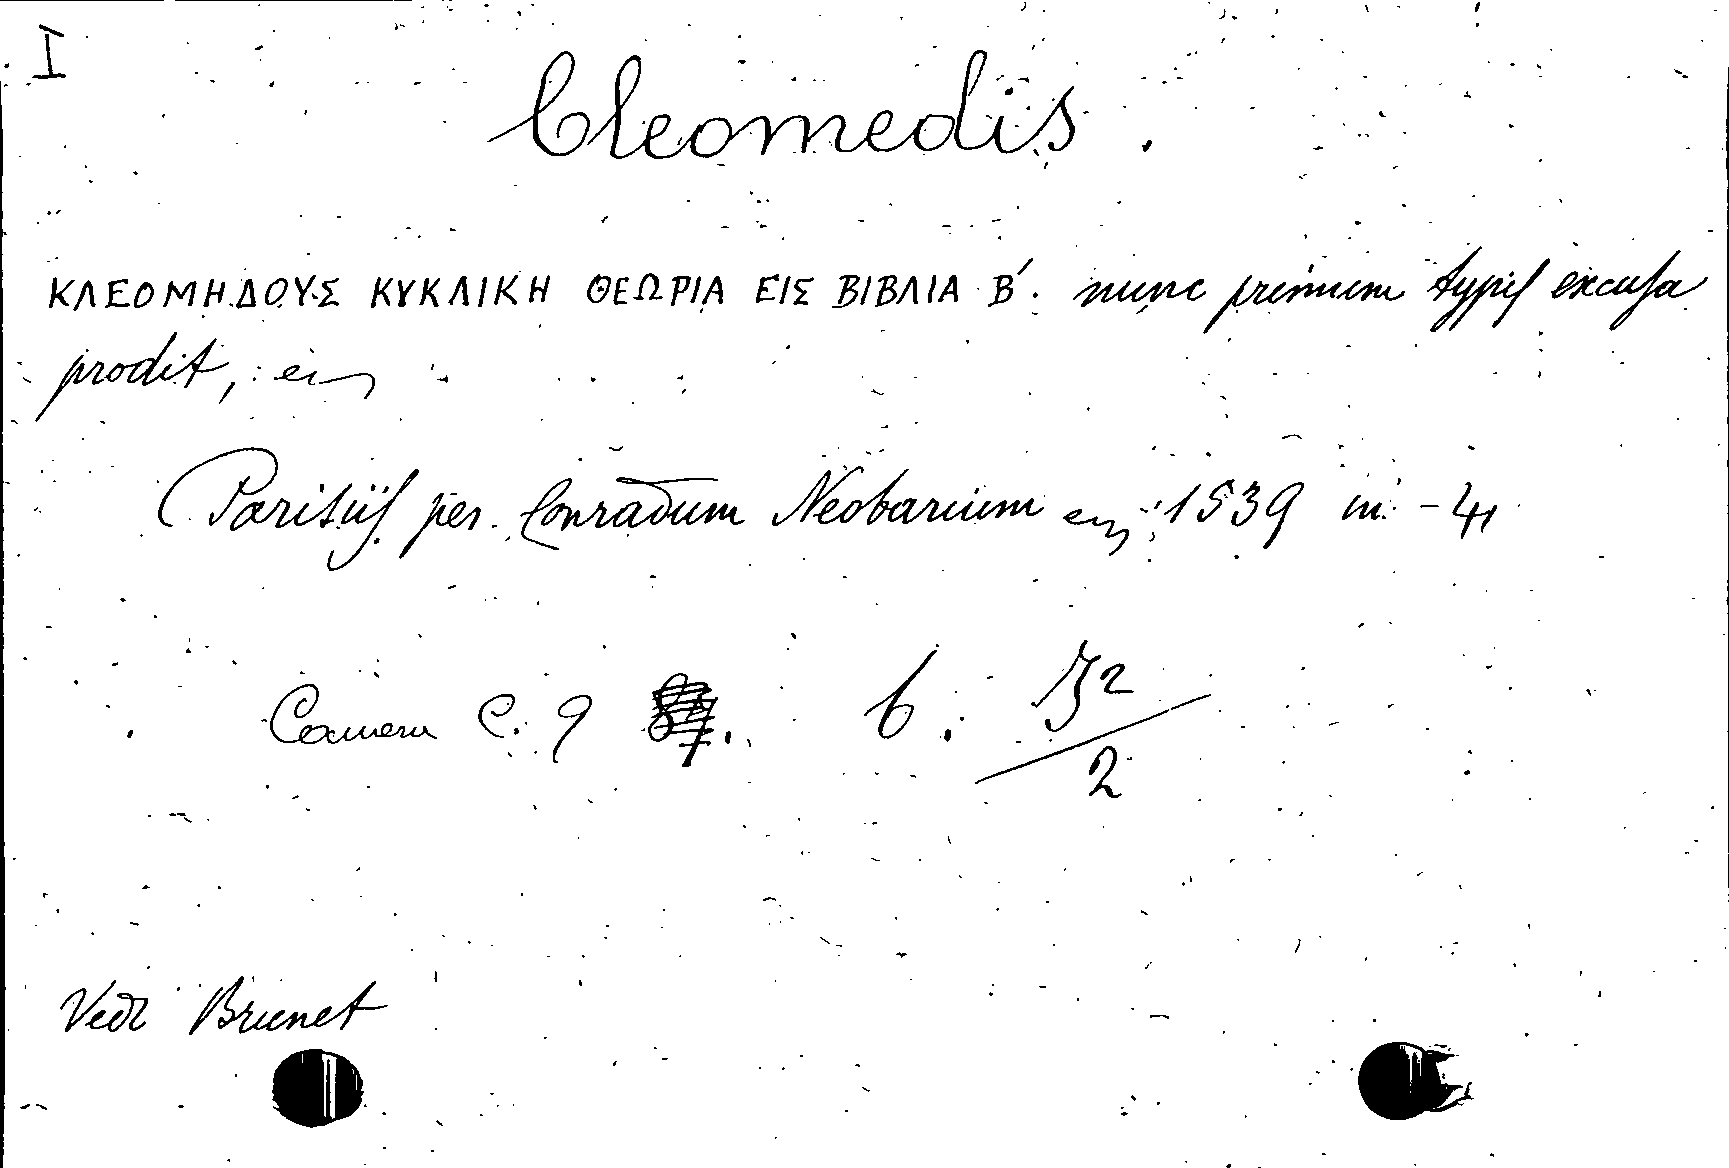 I
Cleomedis.
ΚΛΕΟΜΗΔΟΥΣ ΚΥΚΛΙΚΗ ΘΕΩΡΙΑ ΕΙΣ ΒΙΒΛΙΑ Β΄. nunc primum typis excusa
prodit,
Parisiis per Conradum Neobarium 1539 in-4
Camera C. 9 b. 32/2
Vedi Brunet